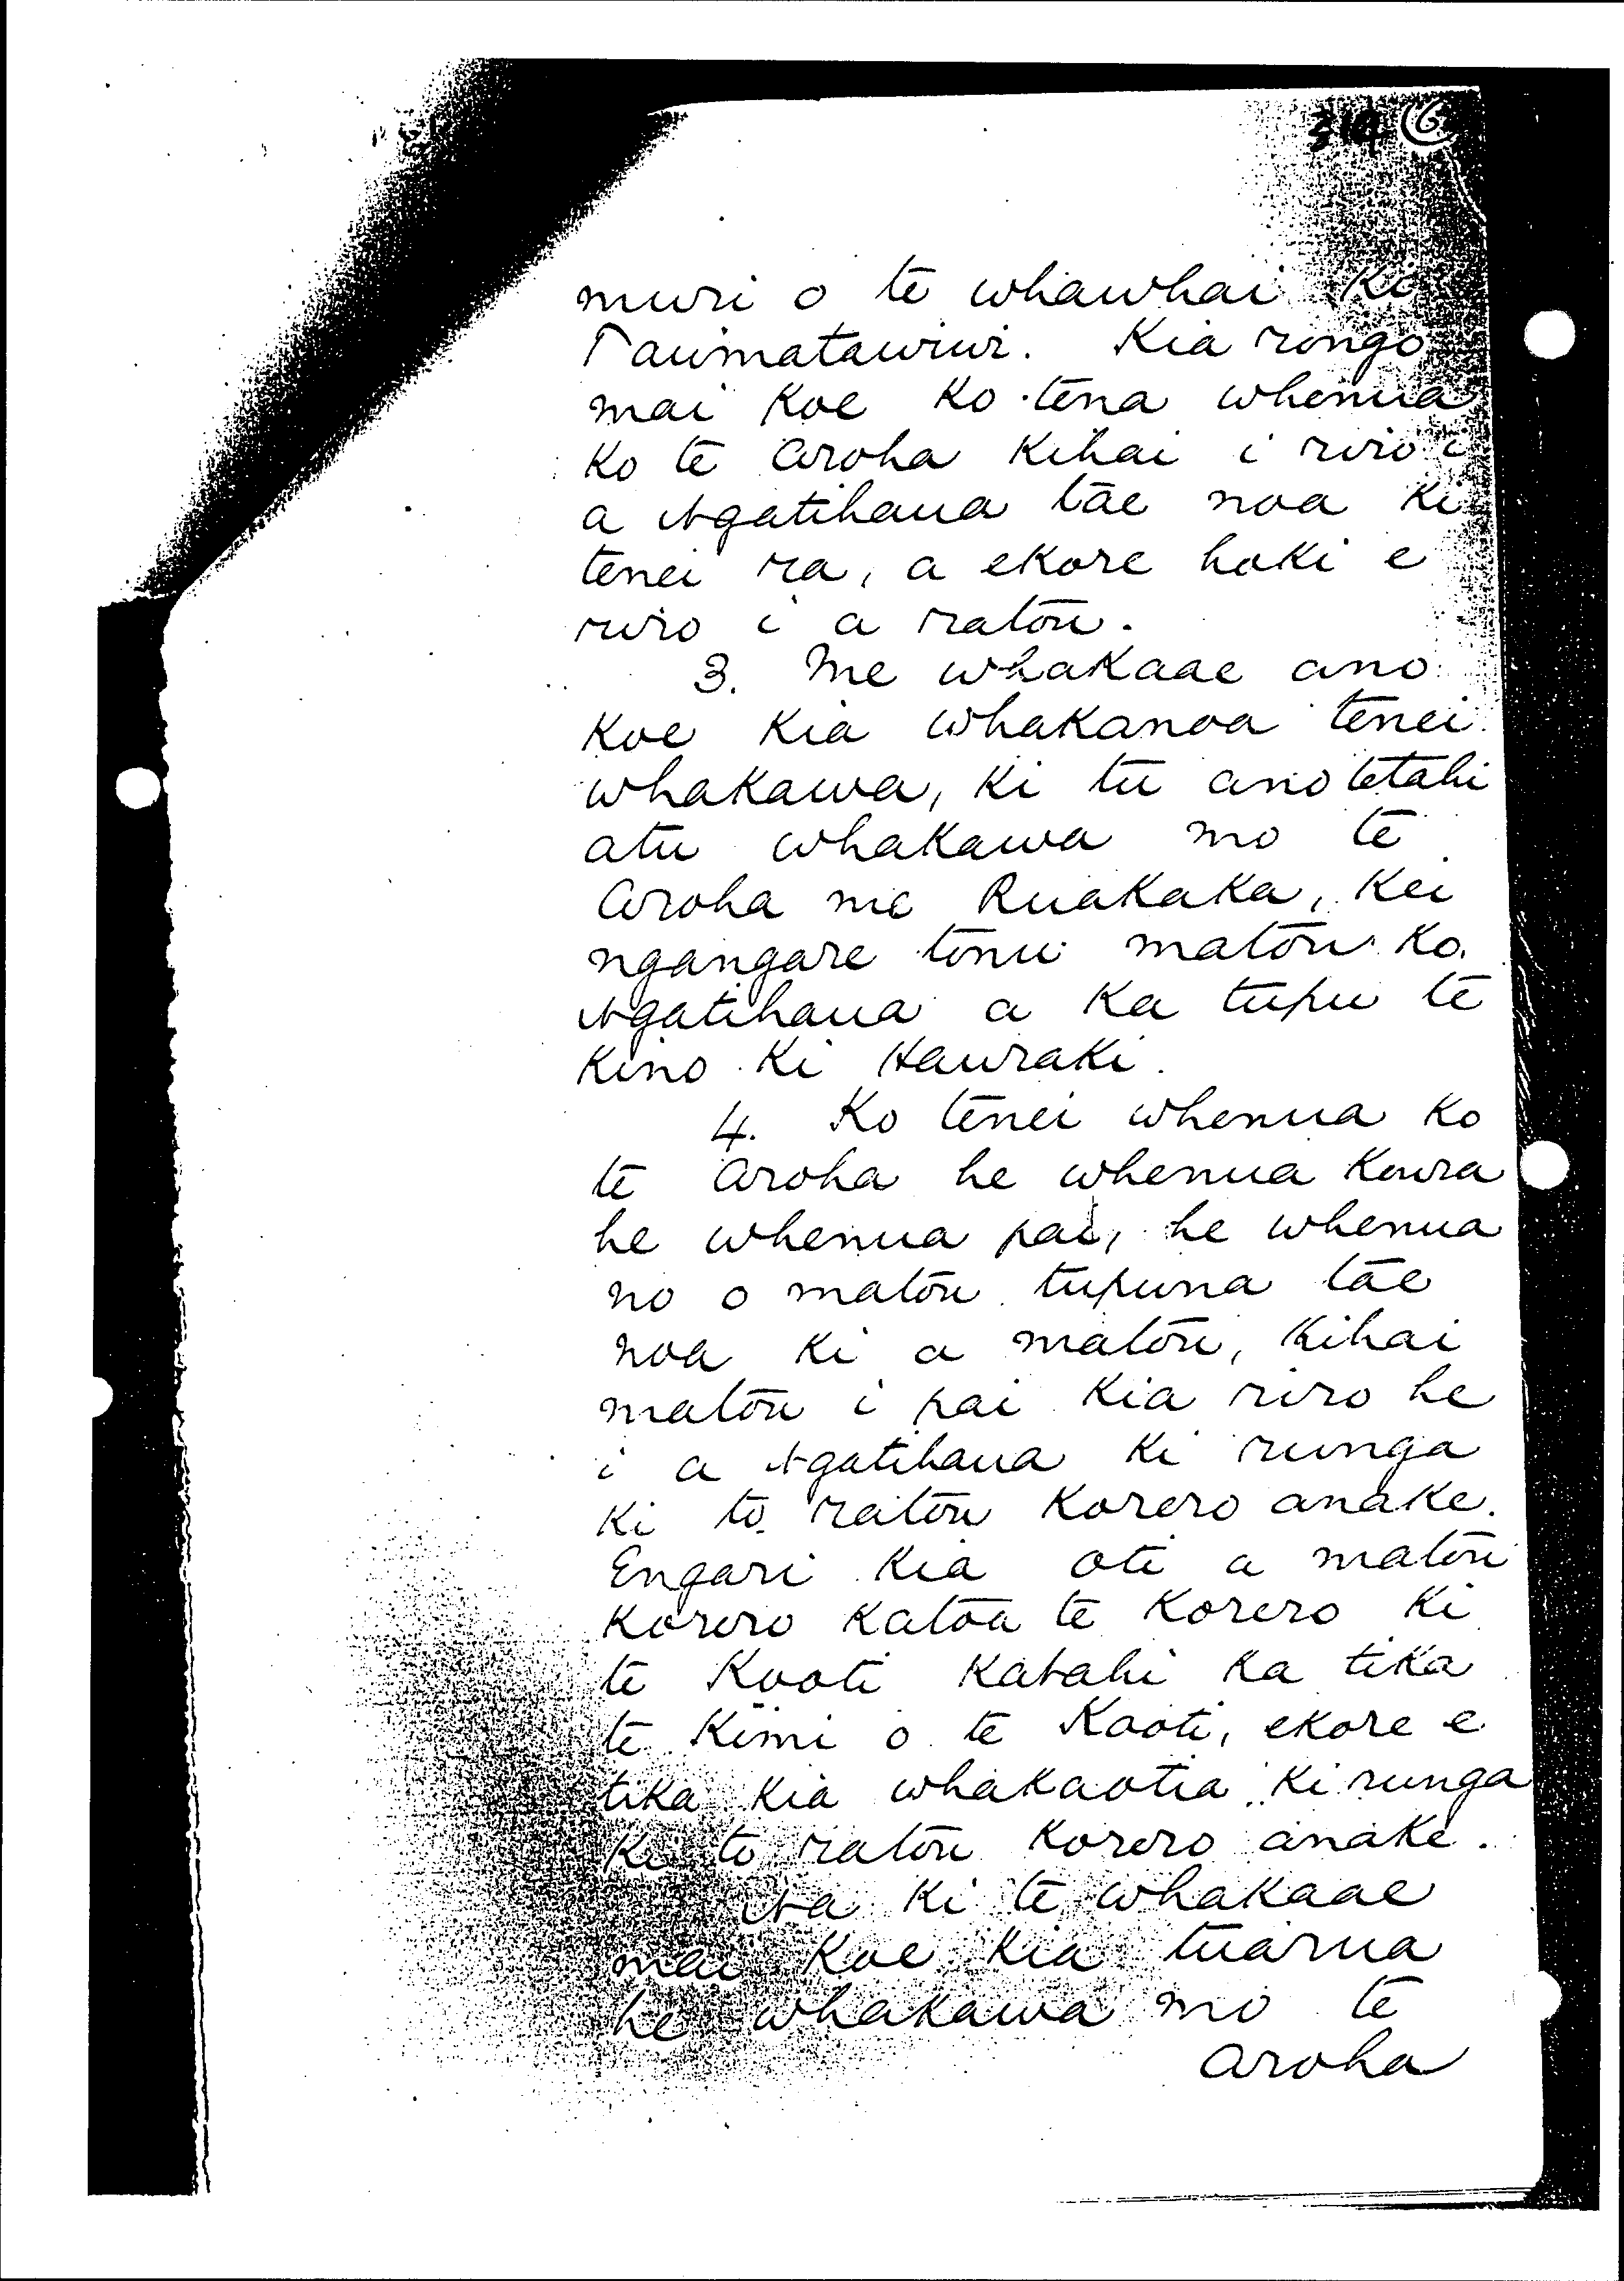 314 6
muri o te whawhai Ki
Taumatawiwi. Kia rongo
mai Koe Ko tena whenua
Ko te Aroha Kihai i riro i
a Ngatihaua tae noa Ki
tenei ra, a ekore hoki e
riro i a ratou.
3. Me whakaae ano
Koe Kia whakanoa tenei
whakawa, Ki tu ano tetahi
atu whakawa mo te
Aroha me Ruakaka, Kei
ngangare tonu matou Ko
Ngatihaua a Ka tupu te
Kino Ki Hauraki.
4. Ko tenei whenua Ko
te Aroha he whenua Koura
he whenua pai, he whenua
no o matou tupuna tae
noa Ki a matou, Kihai
matou i pai Kia riro he
i a Ngatihaua Ki runga
Ki to ratou Korero anake.
Engari Kia oti a matou
Korero Katoa te Korero Ki
te Kooti Katahi Ka tika
te Kimi o te Kooti, ekore e
tika Kia whakaotia Ki runga
Ki to ratou Korero anake.
Na Ki te whakaae
mai Koe Kia tuarua
he whakawa mo te
Aroha